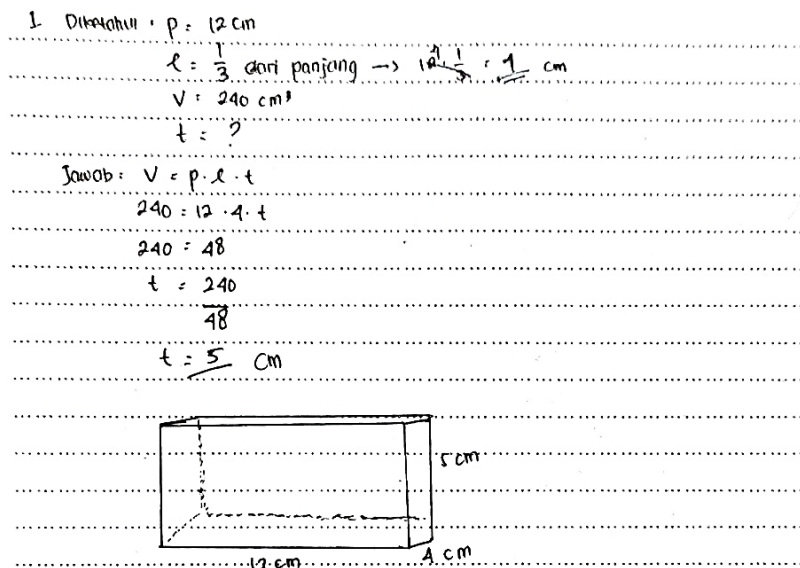 1 Diketahui : p = 12 cm
l = 1/3 dari panjang → 12 4 · 1/3 = 4 cm
V = 240 cm³
t = ?
Jawab : V = p · l · t
240 = 12 · 4 · t
240 = 48
t = 240
48
t = 5 cm
5 cm
4 cm
12 cm